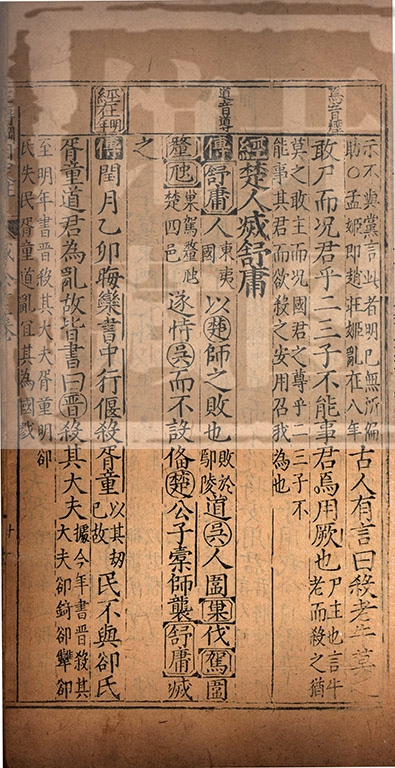 焉音煙
道音導
經在明年
示不與黨言此者明己無所偏
助○孟姬即趙莊姬亂在八年
古人有言曰殺老牛莫
敢尸而况君乎二三子不能事君焉用厥也
尸主也言牛
老而殺之猶
莫之敢主而况國君之尊乎二三子不
能事其君而欲殺之安用召我為也
經楚人滅舒庸
傳舒庸人
東夷
國
以楚師之敗也
敗於
鄢陵
道吳人圍巢伐駕圍
釐虺
巢駕釐虺
楚四邑
遂恃吳而不設俻楚公子橐師襲舒庸滅
之
傳閏月乙卯晦欒書中行偃殺胥童
以其刼
己故
民不與郤氏
胥童道君為亂故皆書曰晉殺其大夫
據今年書晉殺其
大夫郤錡郤犨郤
至明年書晉殺其大夫胥童明郤
氏失民胥童道亂宜其為國戮